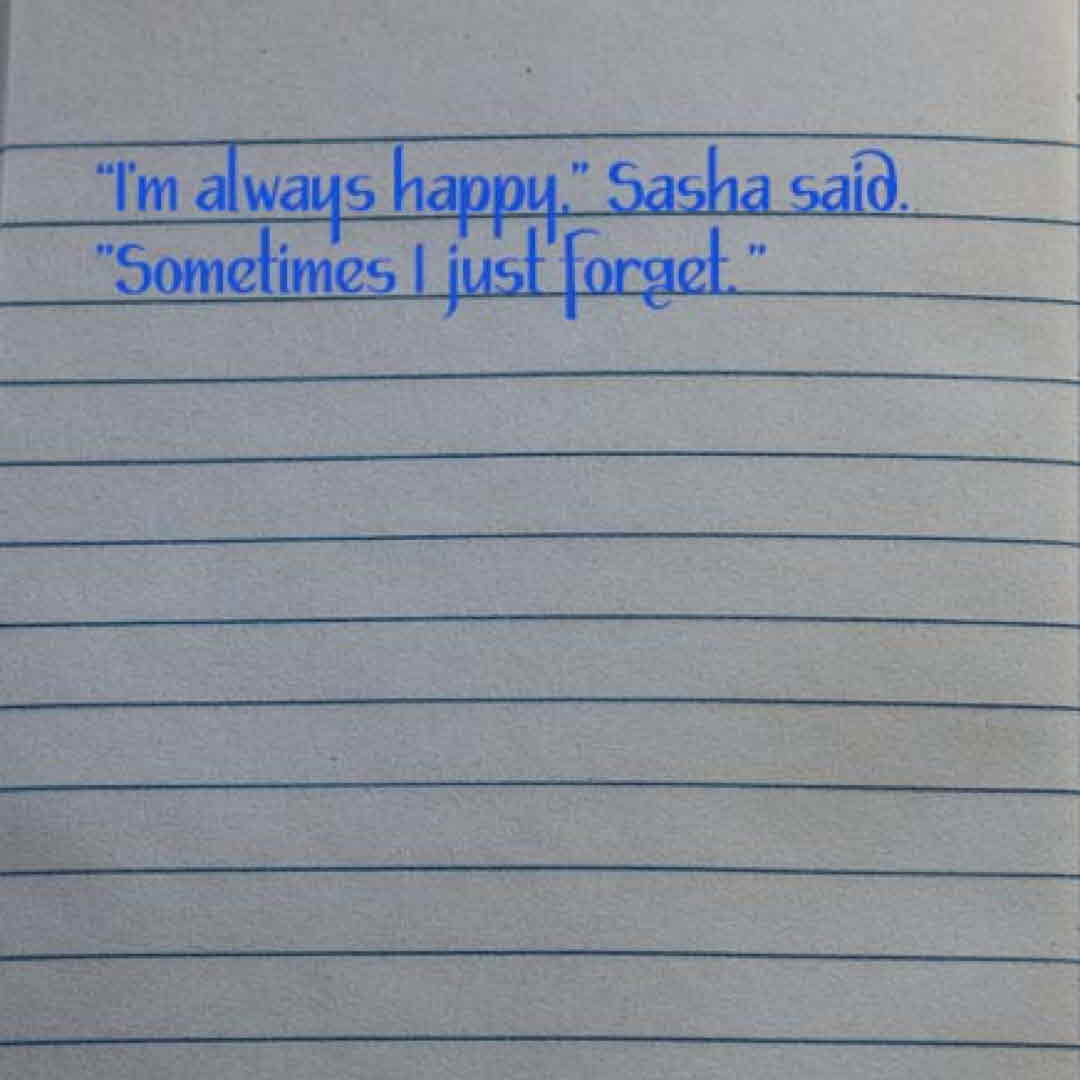 “I'm always happy,” Sasha said.
"Sometimes I just forget."